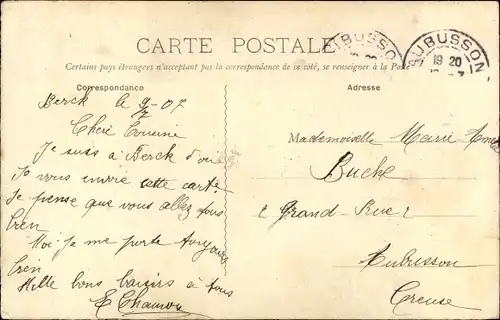 CARTE POSTALE
Certains pays étrangers n'acceptant pas la correspondance de ce côté, se renseigner à la Poste
AUBUSSON
AUBUSSON
19 20
Correspondance
Adresse
Berck le 07
Chère Cousine
Je suis à Berck d'où
Je vous envoie cette carte
Je pense que vous allez tous
bien
Moi je me porte toujours
bien
Mille bons baisirs à tous
E Chanon
Mademoiselle Marie
Buche
2 Grand-Rue 2
Aubusson
Creuse